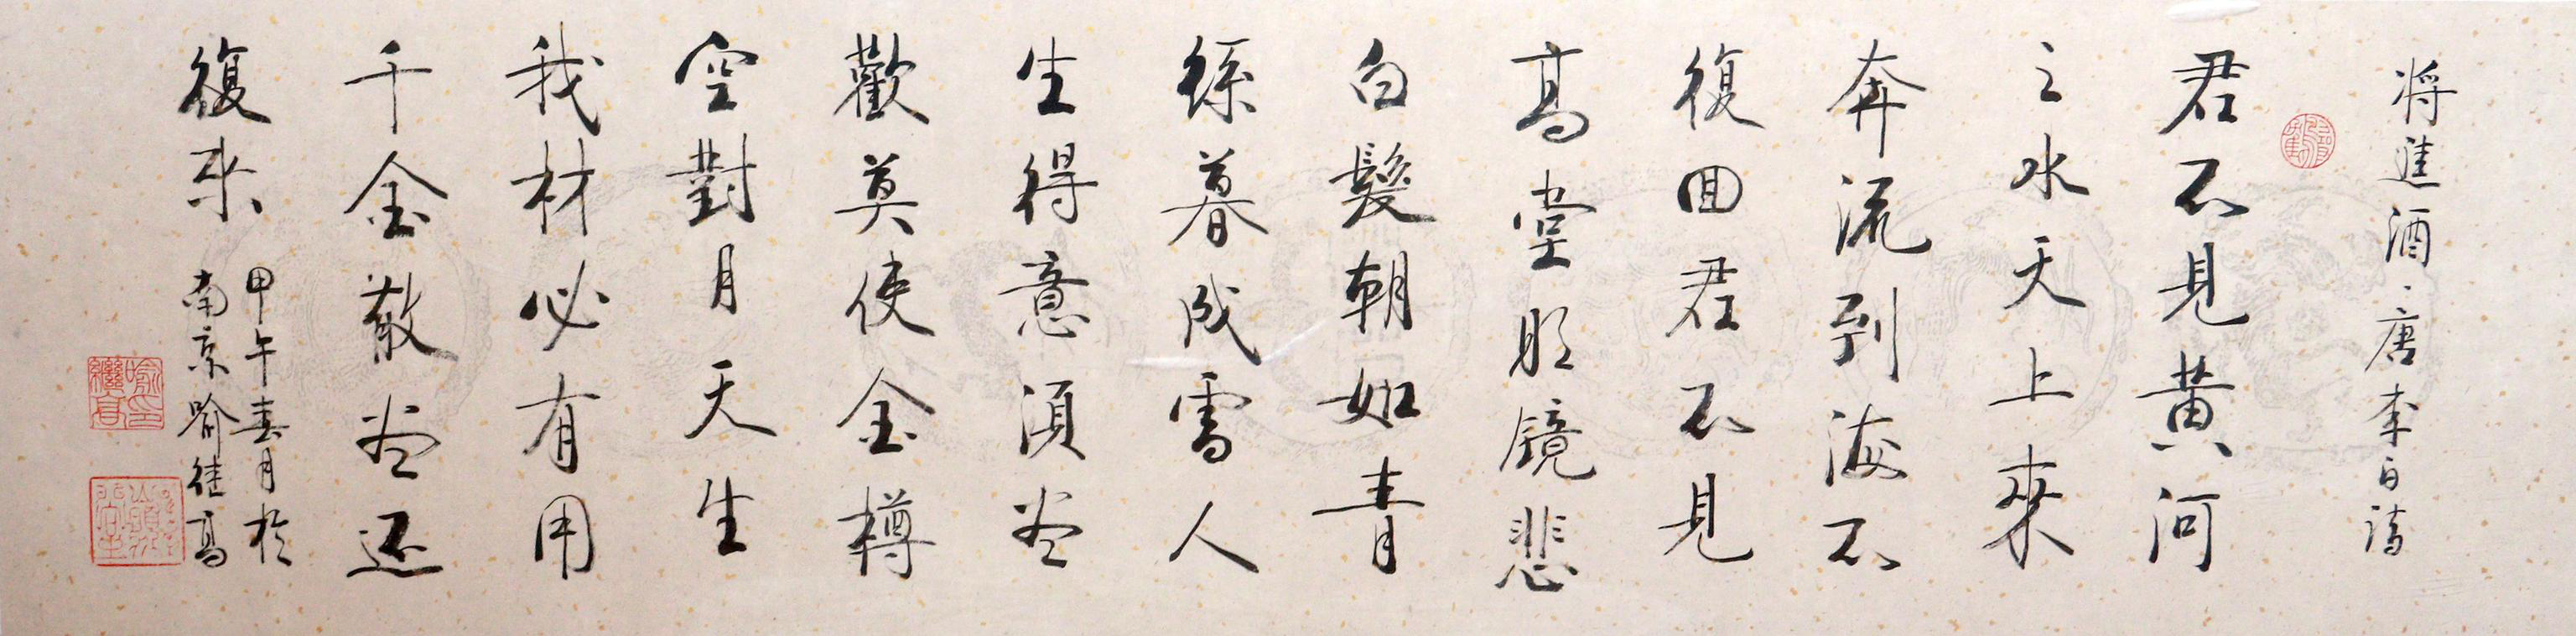 将進酒·唐李白詩
君不見黄河
之水天上來
奔流到海不
復回君不見
髙堂明鏡悲
白髮朝如青
絲暮成雪人
生得意須尽
歡莫使金樽
空對月天生
我材必有用
千金散尽还
復来
甲午春月於
南京喻继高
喻继高印